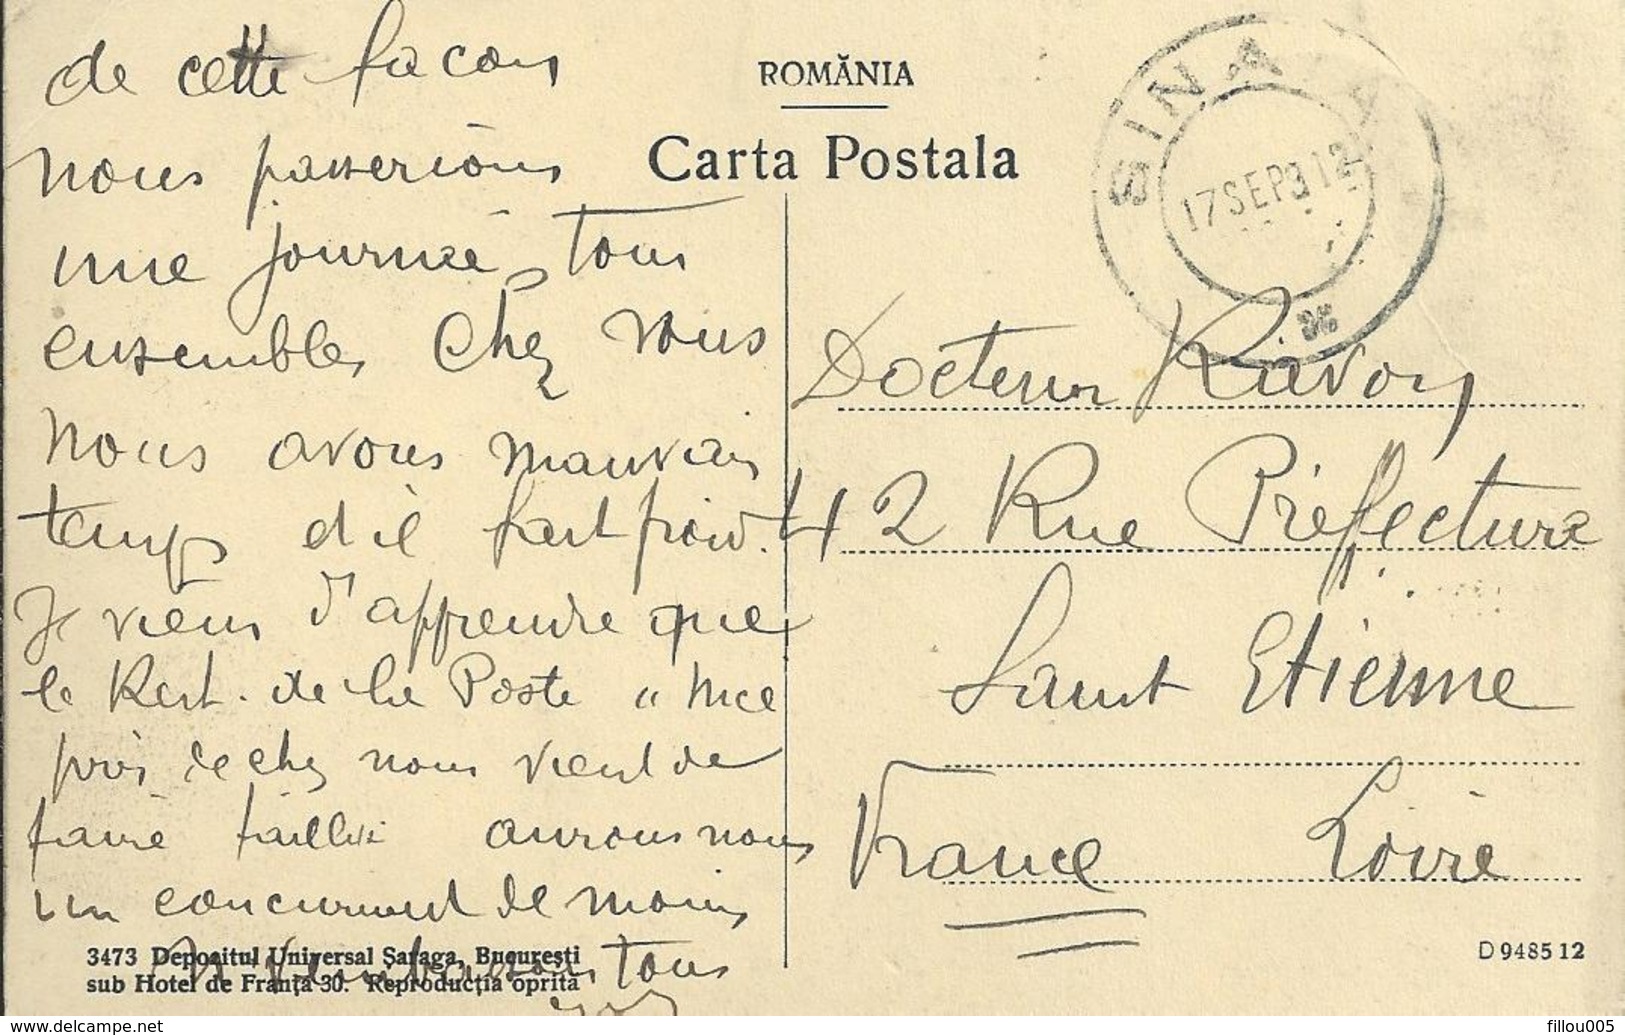 de cette facon
nous passerions
une journée, tous
ensembles chez vous
nous avons mauvais
temps et il fait froid.
Je viens d'apprendre que
le Rest. de la Poste "Nice
près de chez nous vient de
faire faillite aurons nous
un concurrent de moins
tous
ROMĂNIA
Carta Postala
SINAIA
17 SEP 912
Docteur Ravon
42 Rue Préfecture
Saint Etienne
France Loire
3473 Depozitul Universal Șaraga, București
sub Hotel de Franța 30. Reproducția oprită
D 9485 12
delcampe.net
fillou005